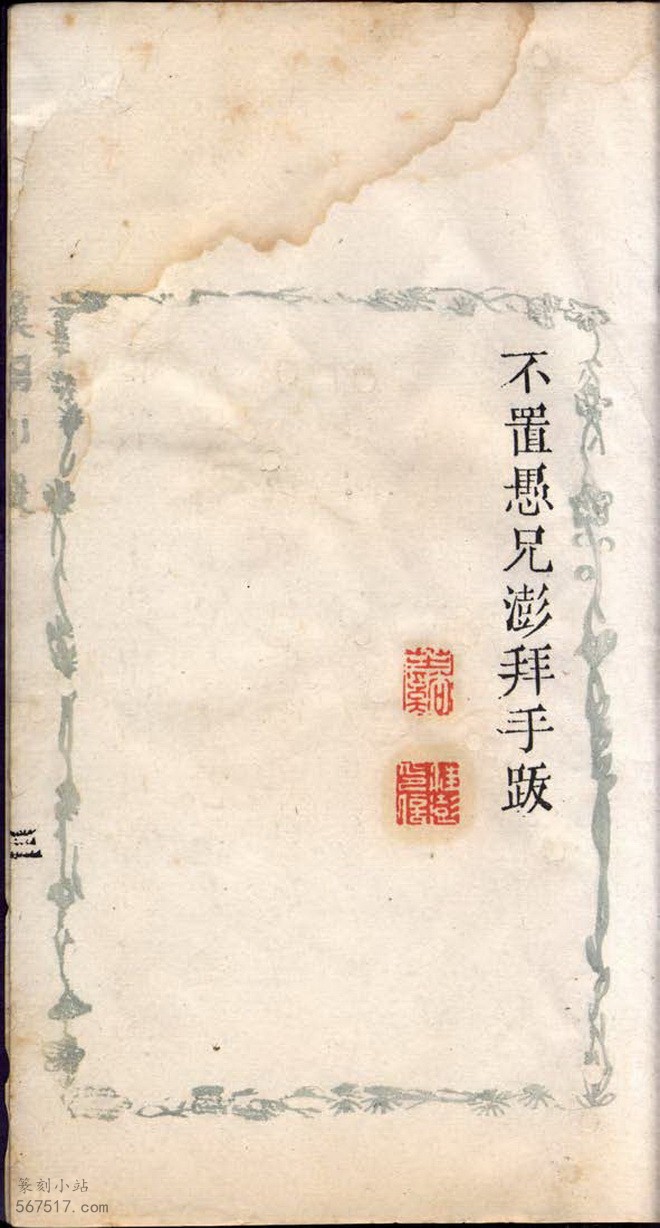 不置愚兄澎拜手跋
汪澎印信
篆刻小站
567517.com